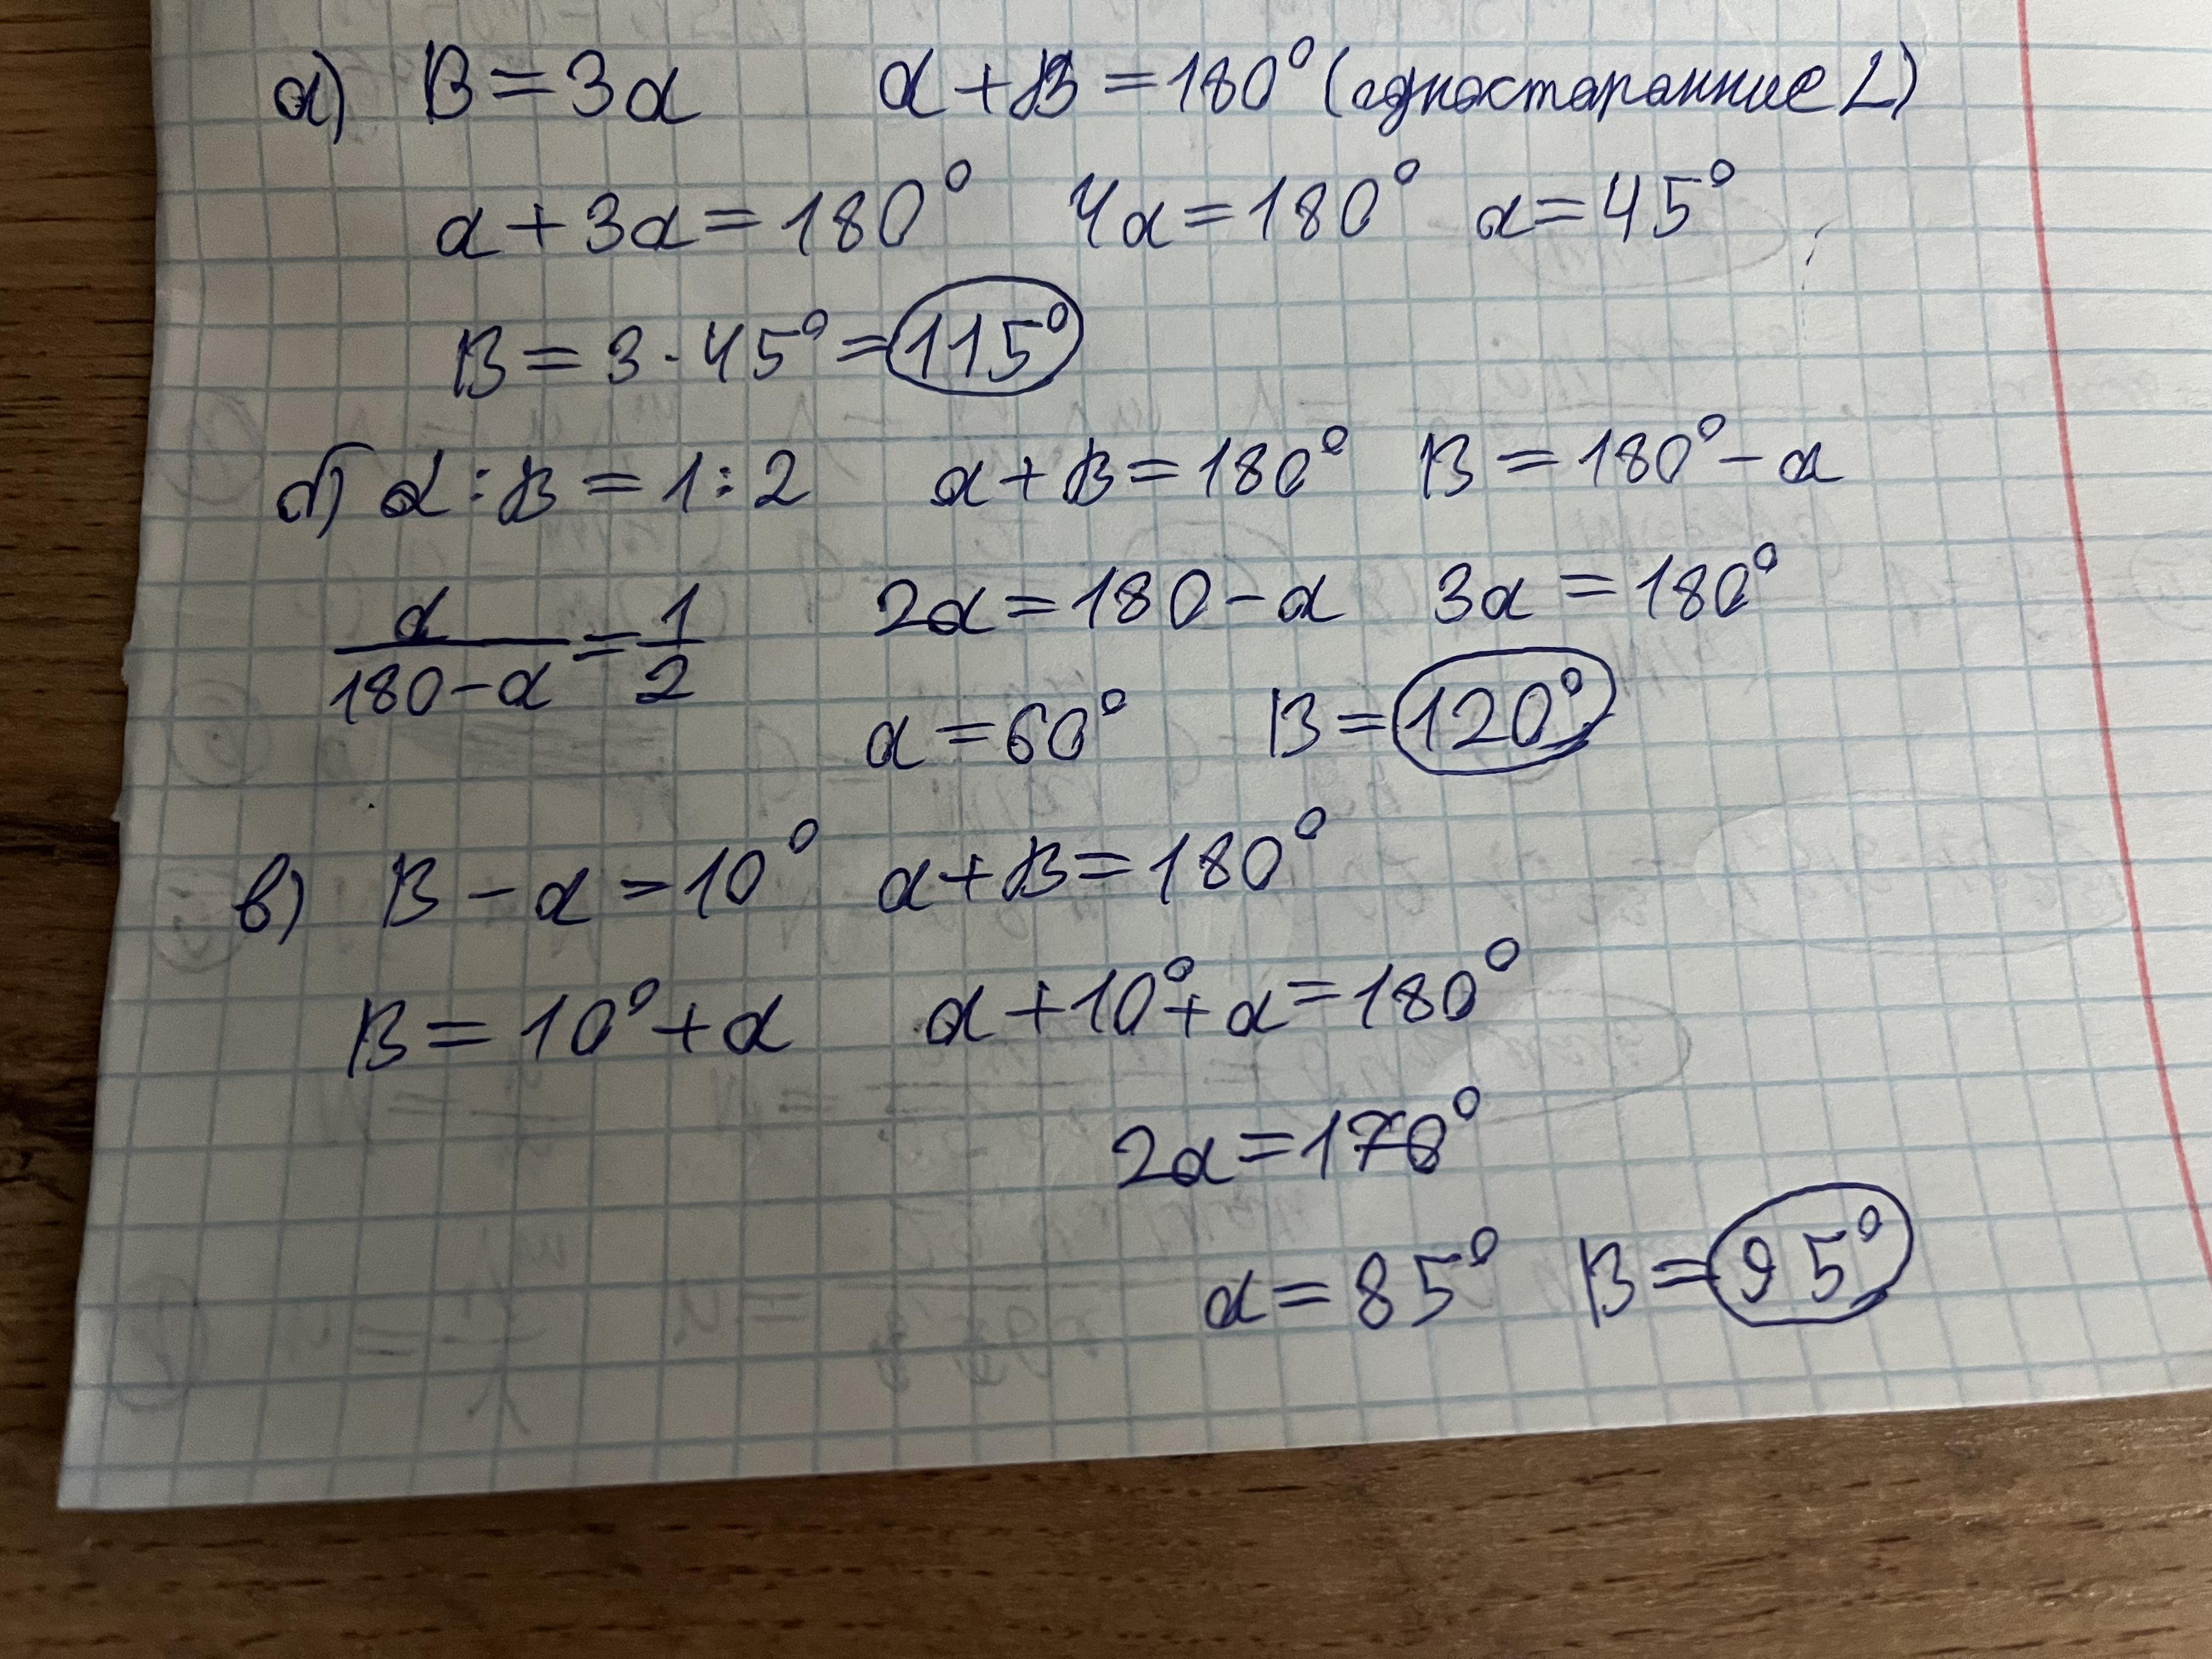 а) β = 3α α + β = 180° (одностаранние ∠)
α + 3α = 180° 4α = 180° α = 45°
β = 3 · 45° = 115°
б) α : β = 1 : 2 α + β = 180° β = 180° - α
α/(180 - α) = 1/2 2α = 180 - α 3α = 180°
α = 60° β = 120°
в) β - α = 10° α + β = 180°
β = 10° + α α + 10° + α = 180°
2α = 170°
α = 85° β = 95°